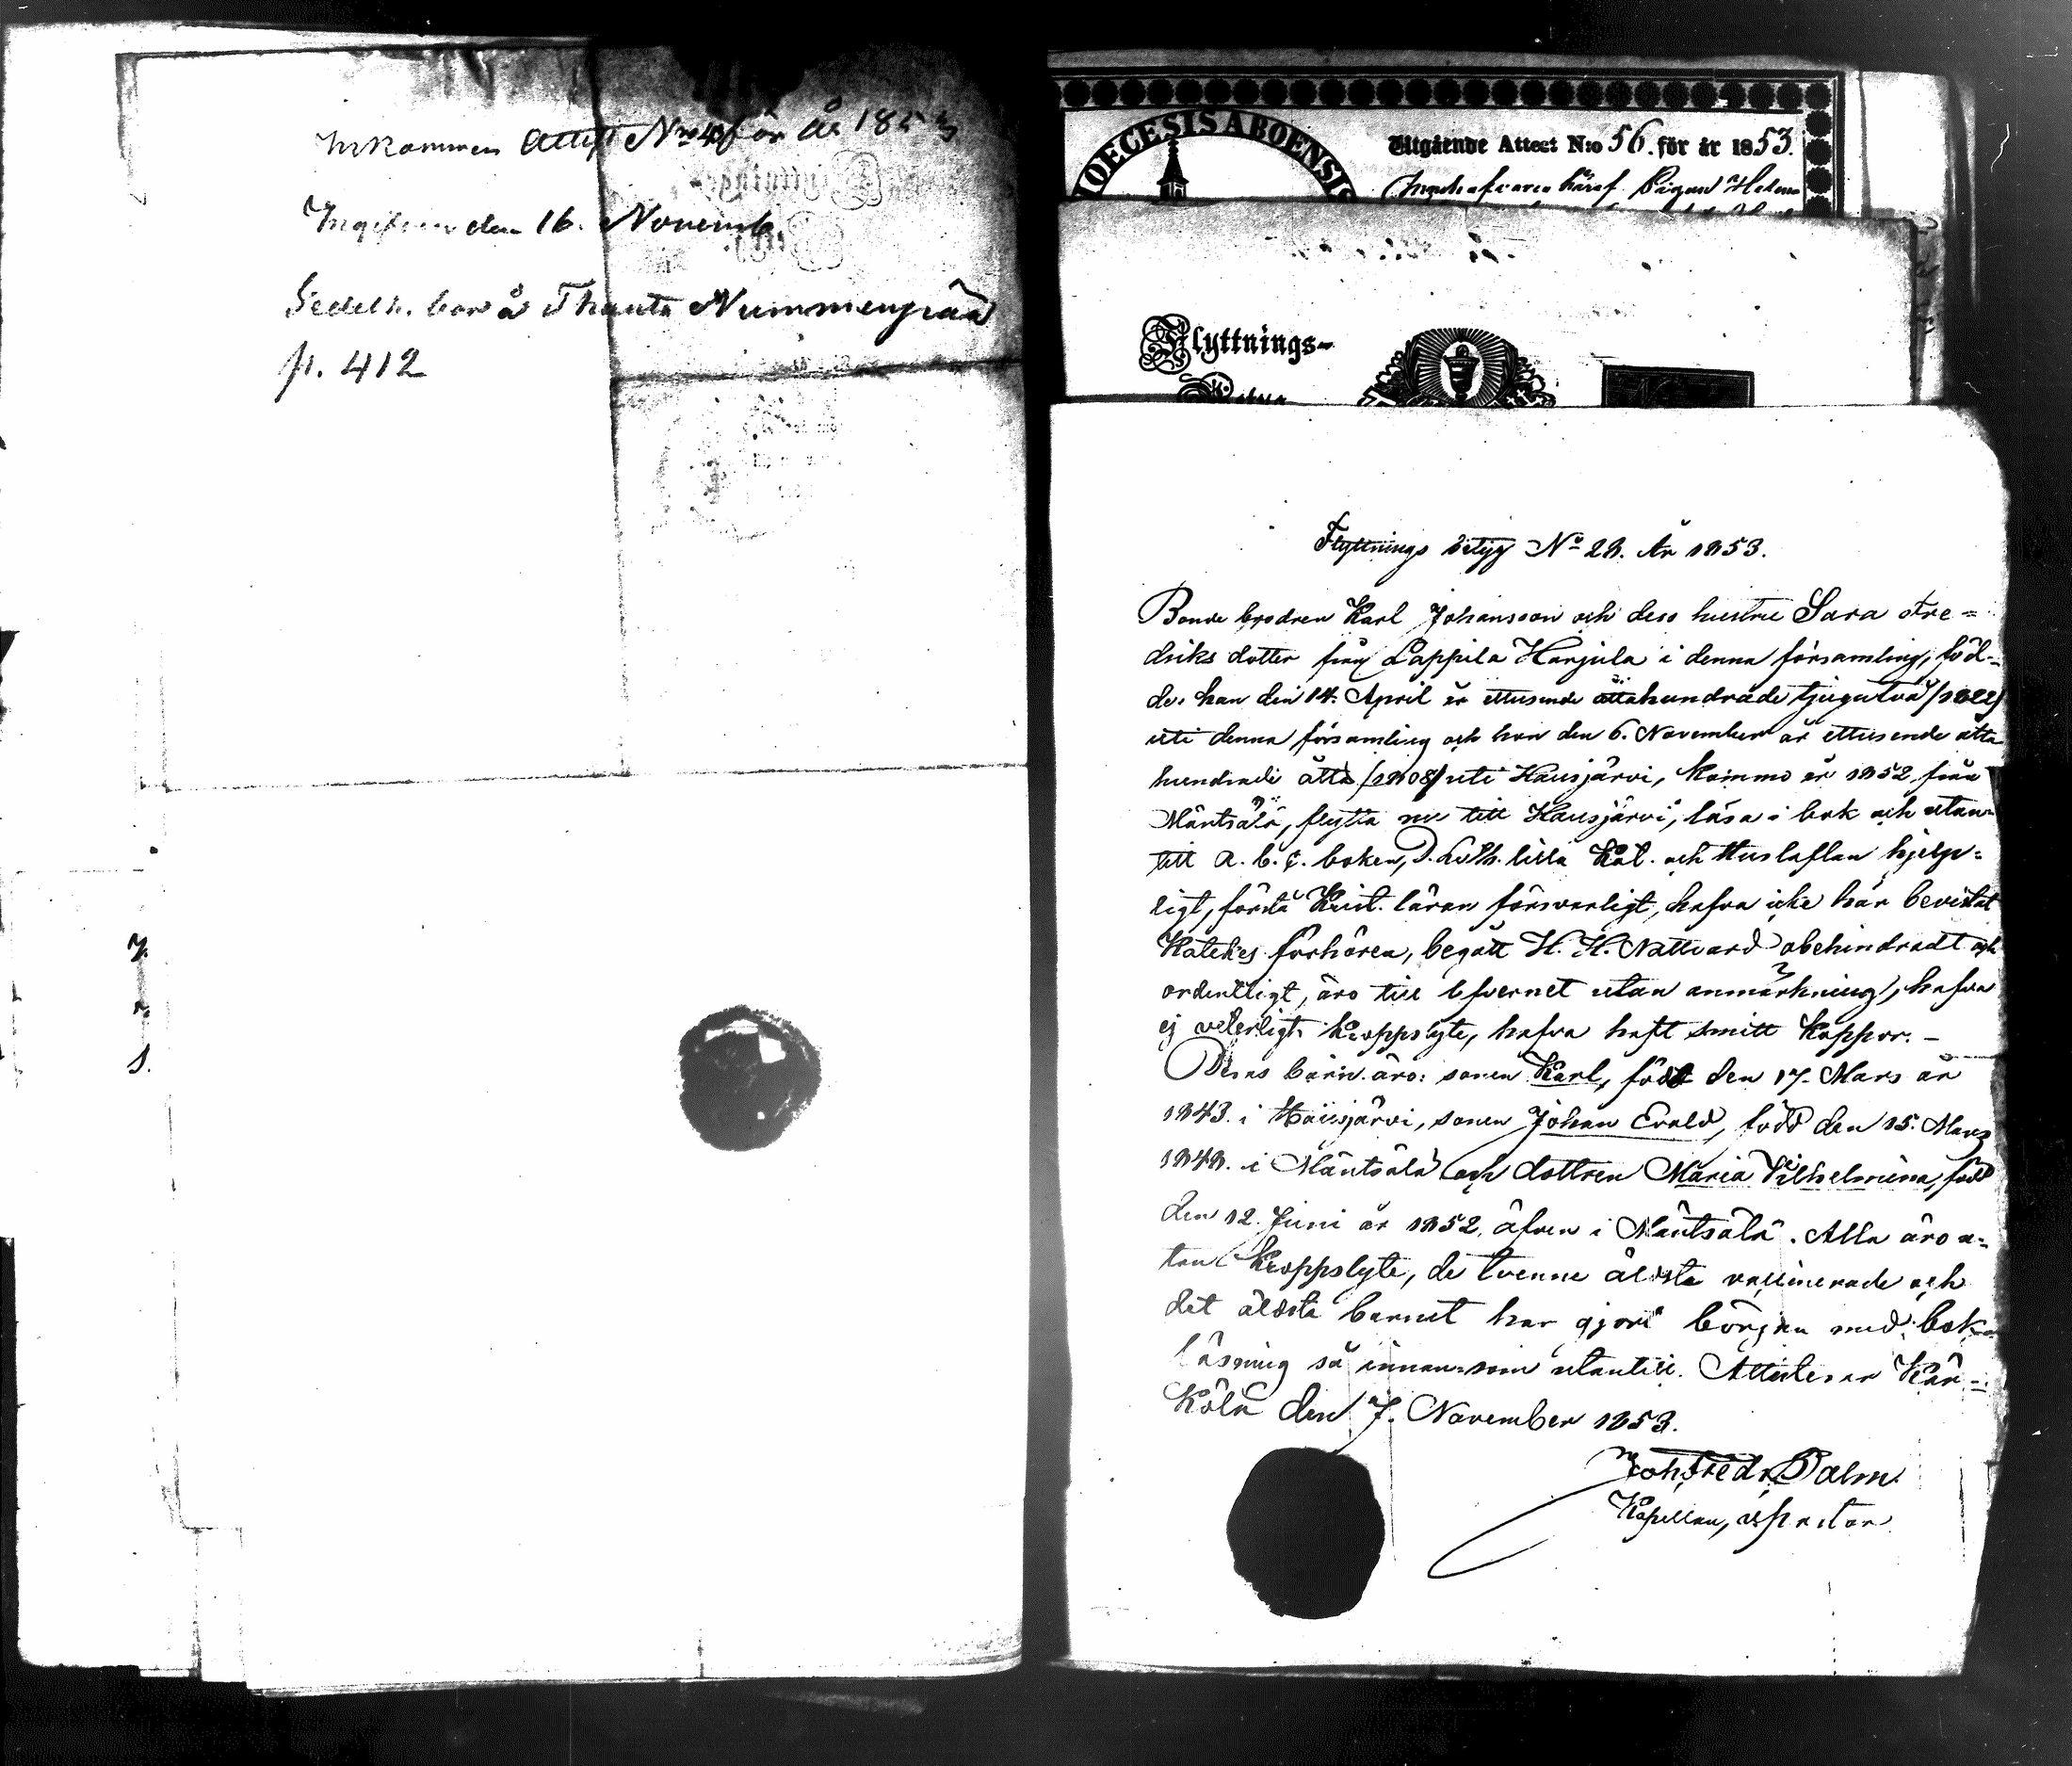 Inkommen Attest Nro 4 för år 1853
Ingifven den 16. Novemb.
Sedelh. bor å Thauta Nummenpää
p. 412
DIOECESIS ABOENSIS
Utgående Attest N:o 56. för år 1853.
Innehafvaren häraf Pigan Helena
Flyttnings-
Flyttnings betyg No 28. År 1853.
Bonde brodren Karl Johansson och dess hustru Sara Fre=
driks dotter från Lappila Harjula i denna församling, föd-
de: han den 14. April år ettusende åttahundrade tjugutvå /1822/
uti denna församling och hon den 6. November år ettusende åtta
hundrade åtta /1808/ uti Hausjärvi, kommo år 1852 från
Mäntsälä, flytta nu till Hausjärvi, läsa i bok och utan=
till a. b. c. boken, D. Luth. lilla Kat. och Hustaflan hjelp=
ligt, förstå Krist. läran försvarligt, hafva icke här bevistat
Katekes förhören, begått H. H. Nattvard obehindradt och
ordentligt, äro till lefvernet utan anmärkning, hafva
ej veterligt kroppslyte, hafva haft smitt koppor. –
Deras barn äro: sonen Karl, född den 17. Mars år
1843. i Hausjärvi, sonen Johan Evald, född den 15. Mars
1848. i Mäntsälä och dottren Maria Vilhelmina, född
den 12. Juni år 1852. äfven i Mäntsälä. Alla äro u=
tan kroppslyte, de tvenne äldsta vaccinerade och
det äldsta barnet har gjort början med bok-
läsning så innan= som utantill. Attesterar Kär=
kölä den 7. November 1853.
Joh. Fredr. Palm
Kapellan, v. pastor